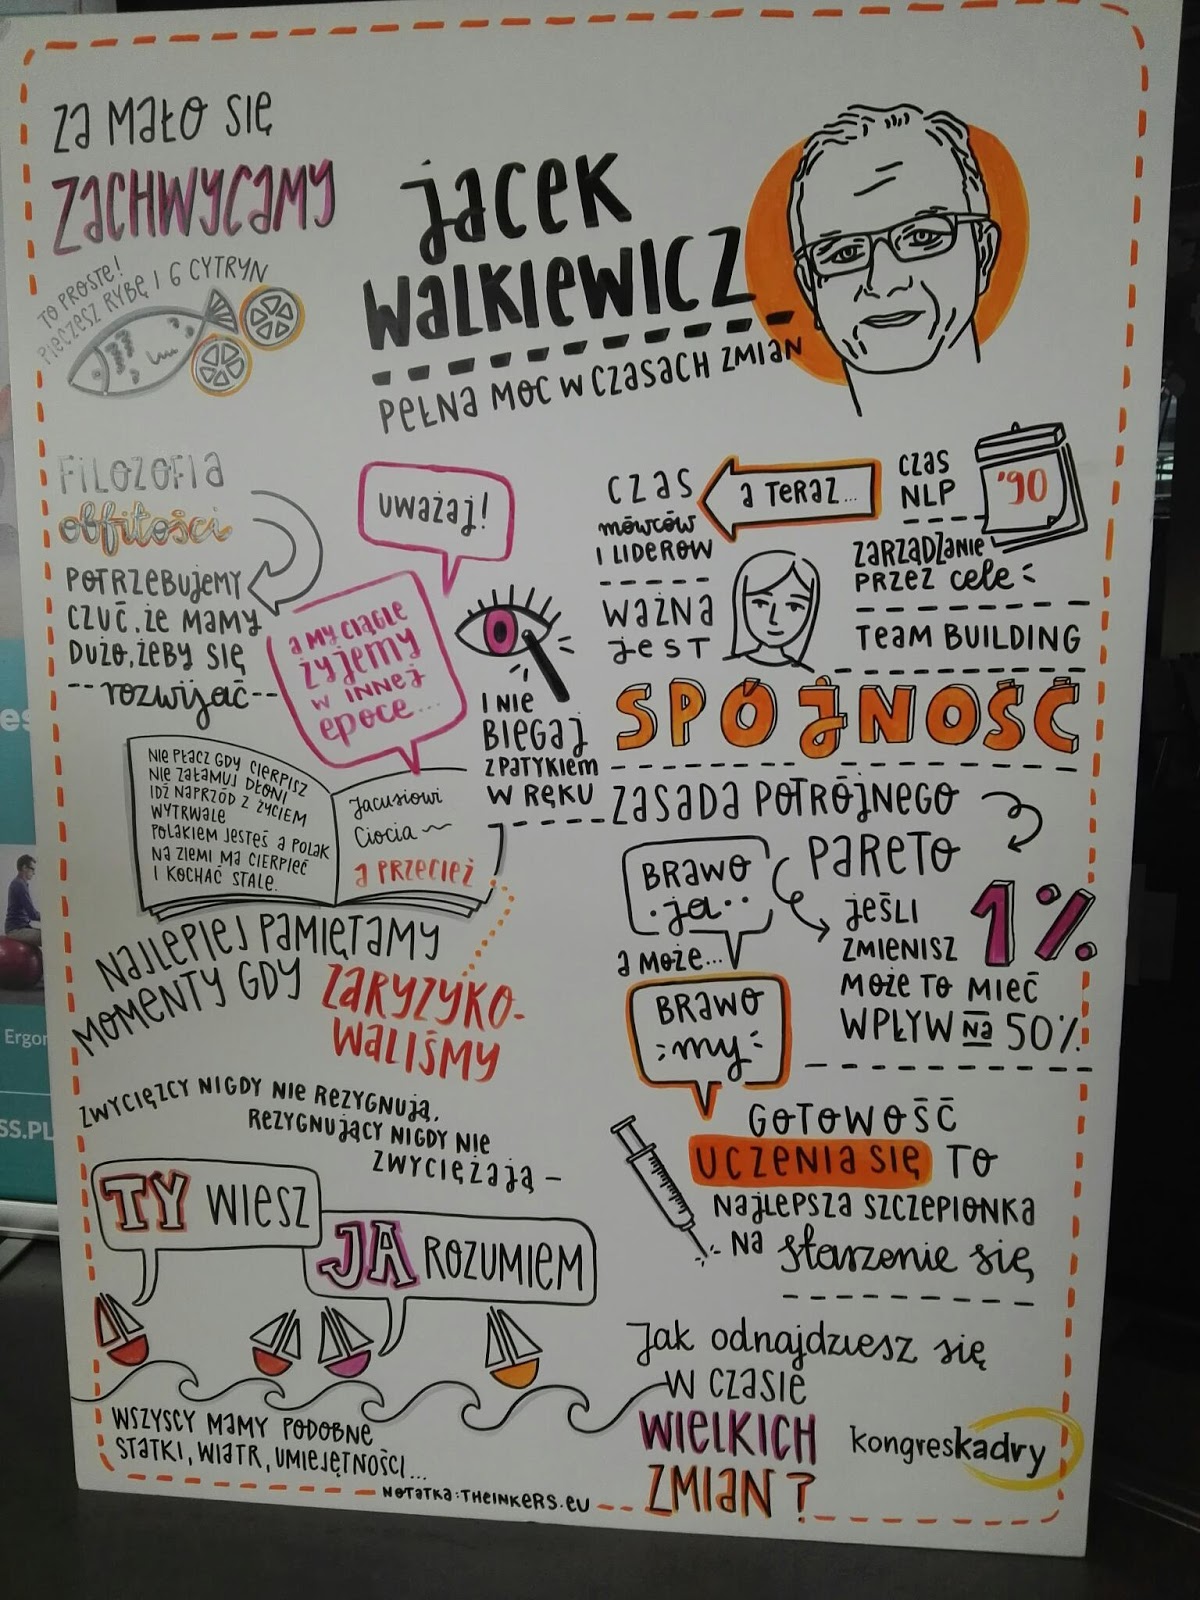 Za mało się
zachwycamy
to proste!
pieczesz rybę i 6 cytryn
Jacek
Walkiewicz
Pełna moc w czasach zmian
Filozofia
obfitości
potrzebujemy
czuć, że mamy
dużo, żeby się
rozwijać
Uważaj!
a my ciągle
żyjemy
w innej
epoce...
i nie
biegaj
z patykiem
w ręku
czas
NLP
'90
zarządzanie
przez cele
team building
a teraz...
czas
mówców
i liderów
ważna
jest
spójność
Nie płacz gdy cierpisz
nie załamuj dłoni
idź naprzód z życiem
wytrwale
Polakiem jesteś a Polak
na ziemi ma cierpieć
i kochać stale.
Jacusiowi
Ciocia
a przecież
najlepiej pamiętamy
momenty gdy zaryzyko-
waliśmy
zasada potrójnego
Pareto
jeśli
zmienisz
1%
może to mieć
wpływ na 50%
Brawo
ja
a może...
Brawo
my
zwycięzcy nigdy nie rezygnują,
rezygnujący nigdy nie
zwyciężają
TY wiesz
JA rozumiem
wszyscy mamy podobne
statki, wiatr, umiejętności...
gotowość
uczenia się to
najlepsza szczepionka
na starzenie się
Jak odnajdziesz się
w czasie
wielkich
zmian?
kongreskadry
notatka: theinkers.eu
es
Ergon
SS.PL